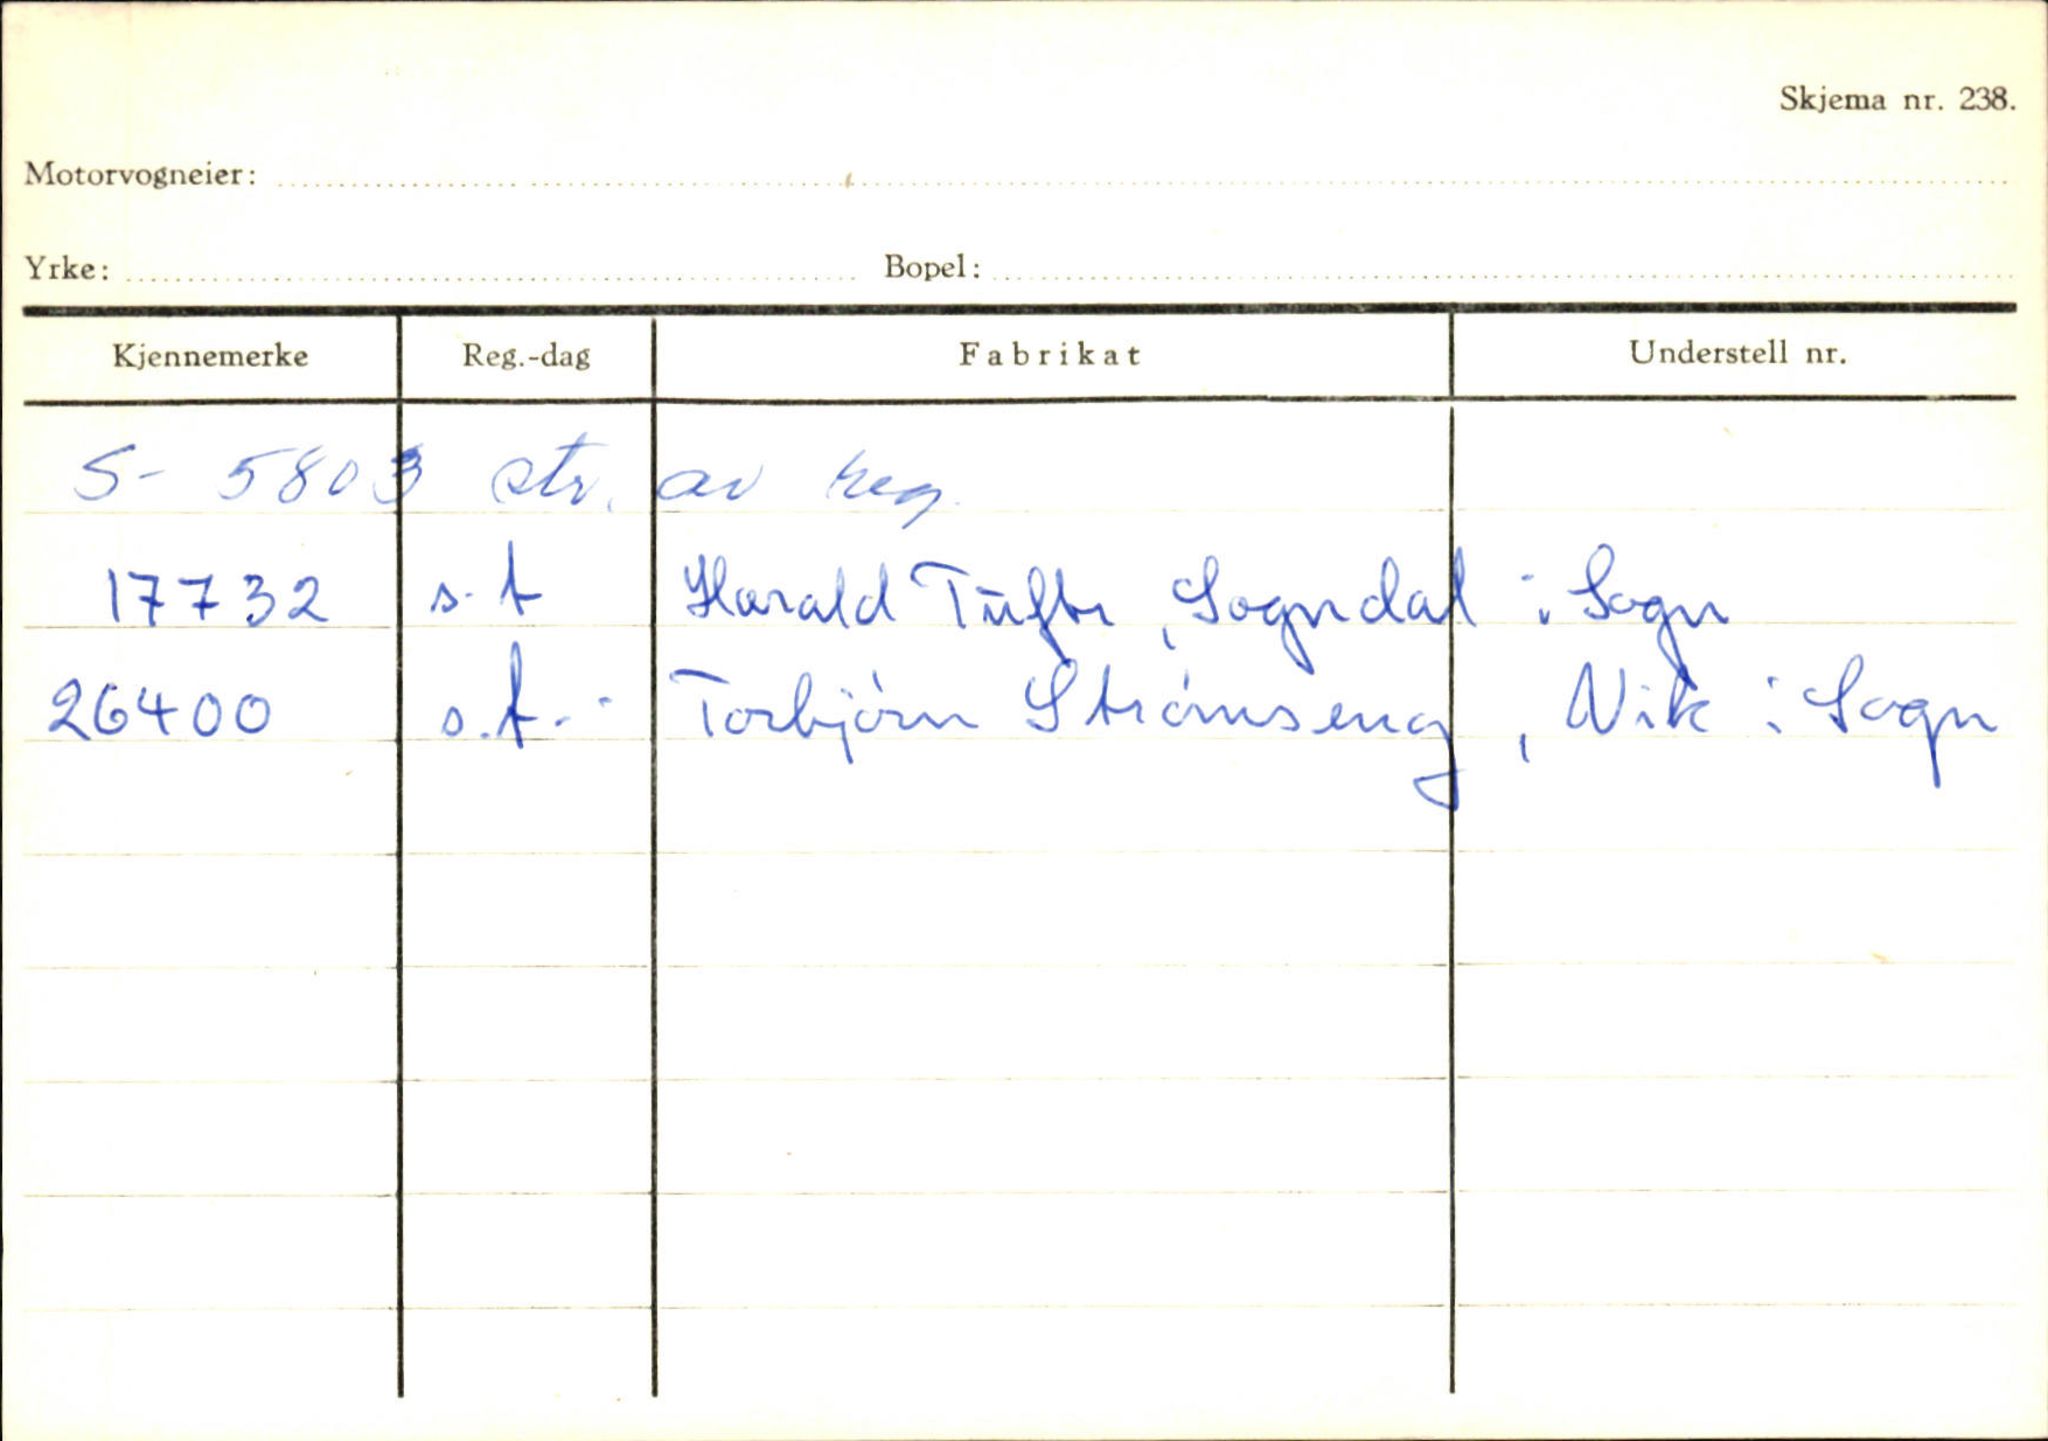 Skjema nr. 238.
Motorvogneier:
Yrke: Bopel:
Kjennemerke Reg.-dag Fabrikat Understell nr.
S- 5803 str. av reg.
17732 s.t Harald Tufte, Sogndal i Sogn
26400 s.t. Torbjørn Strømseng, Vik i Sogn